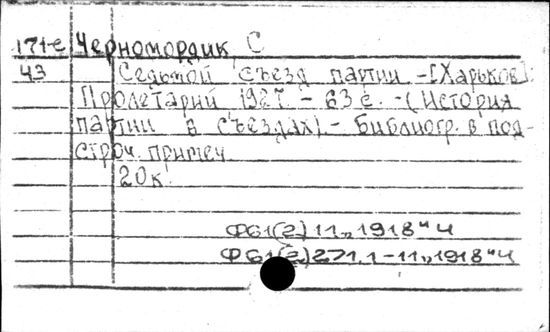 171-е Черномордик, С
43 Седьмой съезд партии. - [Харьков]:
Пролетарий 1927. - 63 с. - (История
партии в съездах). - Библиогр. в под-
строч. примеч.
20к.
Ф61(2)11„1918“Ч
Ф61(2)271.1-11„1918“Ч